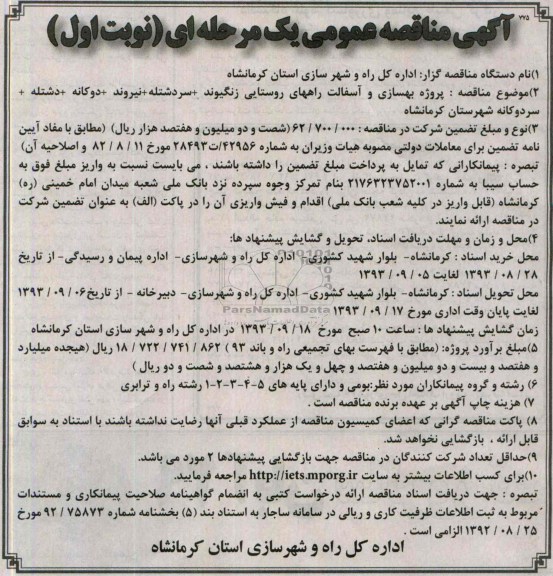 ۷۷۵
آگهی مناقصه عمومی یک مرحله ای (نوبت اول)
۱)نام دستگاه مناقصه گزار: اداره کل راه و شهر سازی استان کرمانشاه
۲)موضوع مناقصه : پروژه بهسازی و آسفالت راههای روستایی زنگیوند +سردشتله+نیروند +دوکانه +دشتله +
سردوکانه شهرستان کرمانشاه
۳)نوع و مبلغ تضمین شرکت در مناقصه : ۰۰۰/ ۷۰۰/ ۶۲(شصت و دو میلیون و هفتصد هزار ریال) (مطابق با مفاد آیین
نامه تضمین برای معاملات دولتی مصوبه هیات وزیران به شماره ۴۲۹۵۶/ت۲۸۴۹۳ مورخ ۱۱ / ۸ / ۸۲ و اصلاحیه آن)
تبصره : پیمانکارانی که تمایل به پرداخت مبلغ تضمین را داشته باشند ، می بایست نسبت به واریز مبلغ فوق به
حساب سیبا به شماره ۲۱۷۶۳۲۳۷۵۲۰۰۱ بنام تمرکز وجوه سپرده نزد بانک ملی شعبه میدان امام خمینی (ره)
کرمانشاه (قابل واریز در کلیه شعب بانک ملی) اقدام و فیش واریزی آن را در پاکت (الف) به عنوان تضمین شرکت
در مناقصه ارائه نمایند.
۴)محل و زمان و مهلت دریافت اسناد، تحویل و گشایش پیشنهاد ها:
محل خرید اسناد : کرمانشاه- بلوار شهید کشوری- اداره کل راه و شهرسازی- اداره پیمان و رسیدگی- از تاریخ
۲۸ / ۰۸ / ۱۳۹۳ لغایت ۰۵ / ۰۹ / ۱۳۹۳
محل تحویل اسناد : کرمانشاه- بلوار شهید کشوری- اداره کل راه و شهرسازی- دبیرخانه - از تاریخ۰۶ / ۰۹ / ۱۳۹۳
لغایت پایان وقت اداری مورخ ۱۷ / ۰۹ / ۱۳۹۳
ParsNamadData
زمان گشایش پیشنهاد ها : ساعت ۱۰ صبح مورخ ۱۸ / ۰۹ / ۱۳۹۳ در اداره کل راه و شهر سازی استان کرمانشاه
۵)مبلغ برآورد پروژه: (مطابق با فهرست بهای تجمیعی راه و باند ۹۳ ) ۸۶۲ / ۷۴۱ / ۷۲۲ / ۱۸ ریال (هیجده میلیارد
و هفتصد و بیست و دو میلیون و هفتصد و چهل و یک هزار و هشتصد و شصت و دو ریال )
۶) رشته و گروه پیمانکاران مورد نظر:بومی و دارای پایه های ۵-۴-۳-۲-۱ رشته راه و ترابری
۷) هزینه چاپ آگهی بر عهده برنده مناقصه است .
۸) پاکت مناقصه گرانی که اعضای کمیسیون مناقصه از عملکرد قبلی آنها رضایت نداشته باشند با استناد به سوابق
قابل ارائه ، بازگشایی نخواهد شد.
۹)حداقل تعداد شرکت کنندگان در مناقصه جهت بازگشایی پیشنهادها ۲ مورد می باشد.
۱۰)برای کسب اطلاعات بیشتر به سایت http://iets.mporg.ir مراجعه فرمایید.
تبصره : جهت دریافت اسناد مناقصه ارائه درخواست کتبی به انضمام گواهینامه صلاحیت پیمانکاری و مستندات
مربوط به ثبت اطلاعات ظرفیت کاری و ریالی در سامانه ساجار به استناد بند (۵) بخشنامه شماره ۷۵۸۷۳/ ۹۲ مورخ
۲۵ / ۰۸ / ۱۳۹۲ الزامی است .
اداره کل راه و شهرسازی استان کرمانشاه